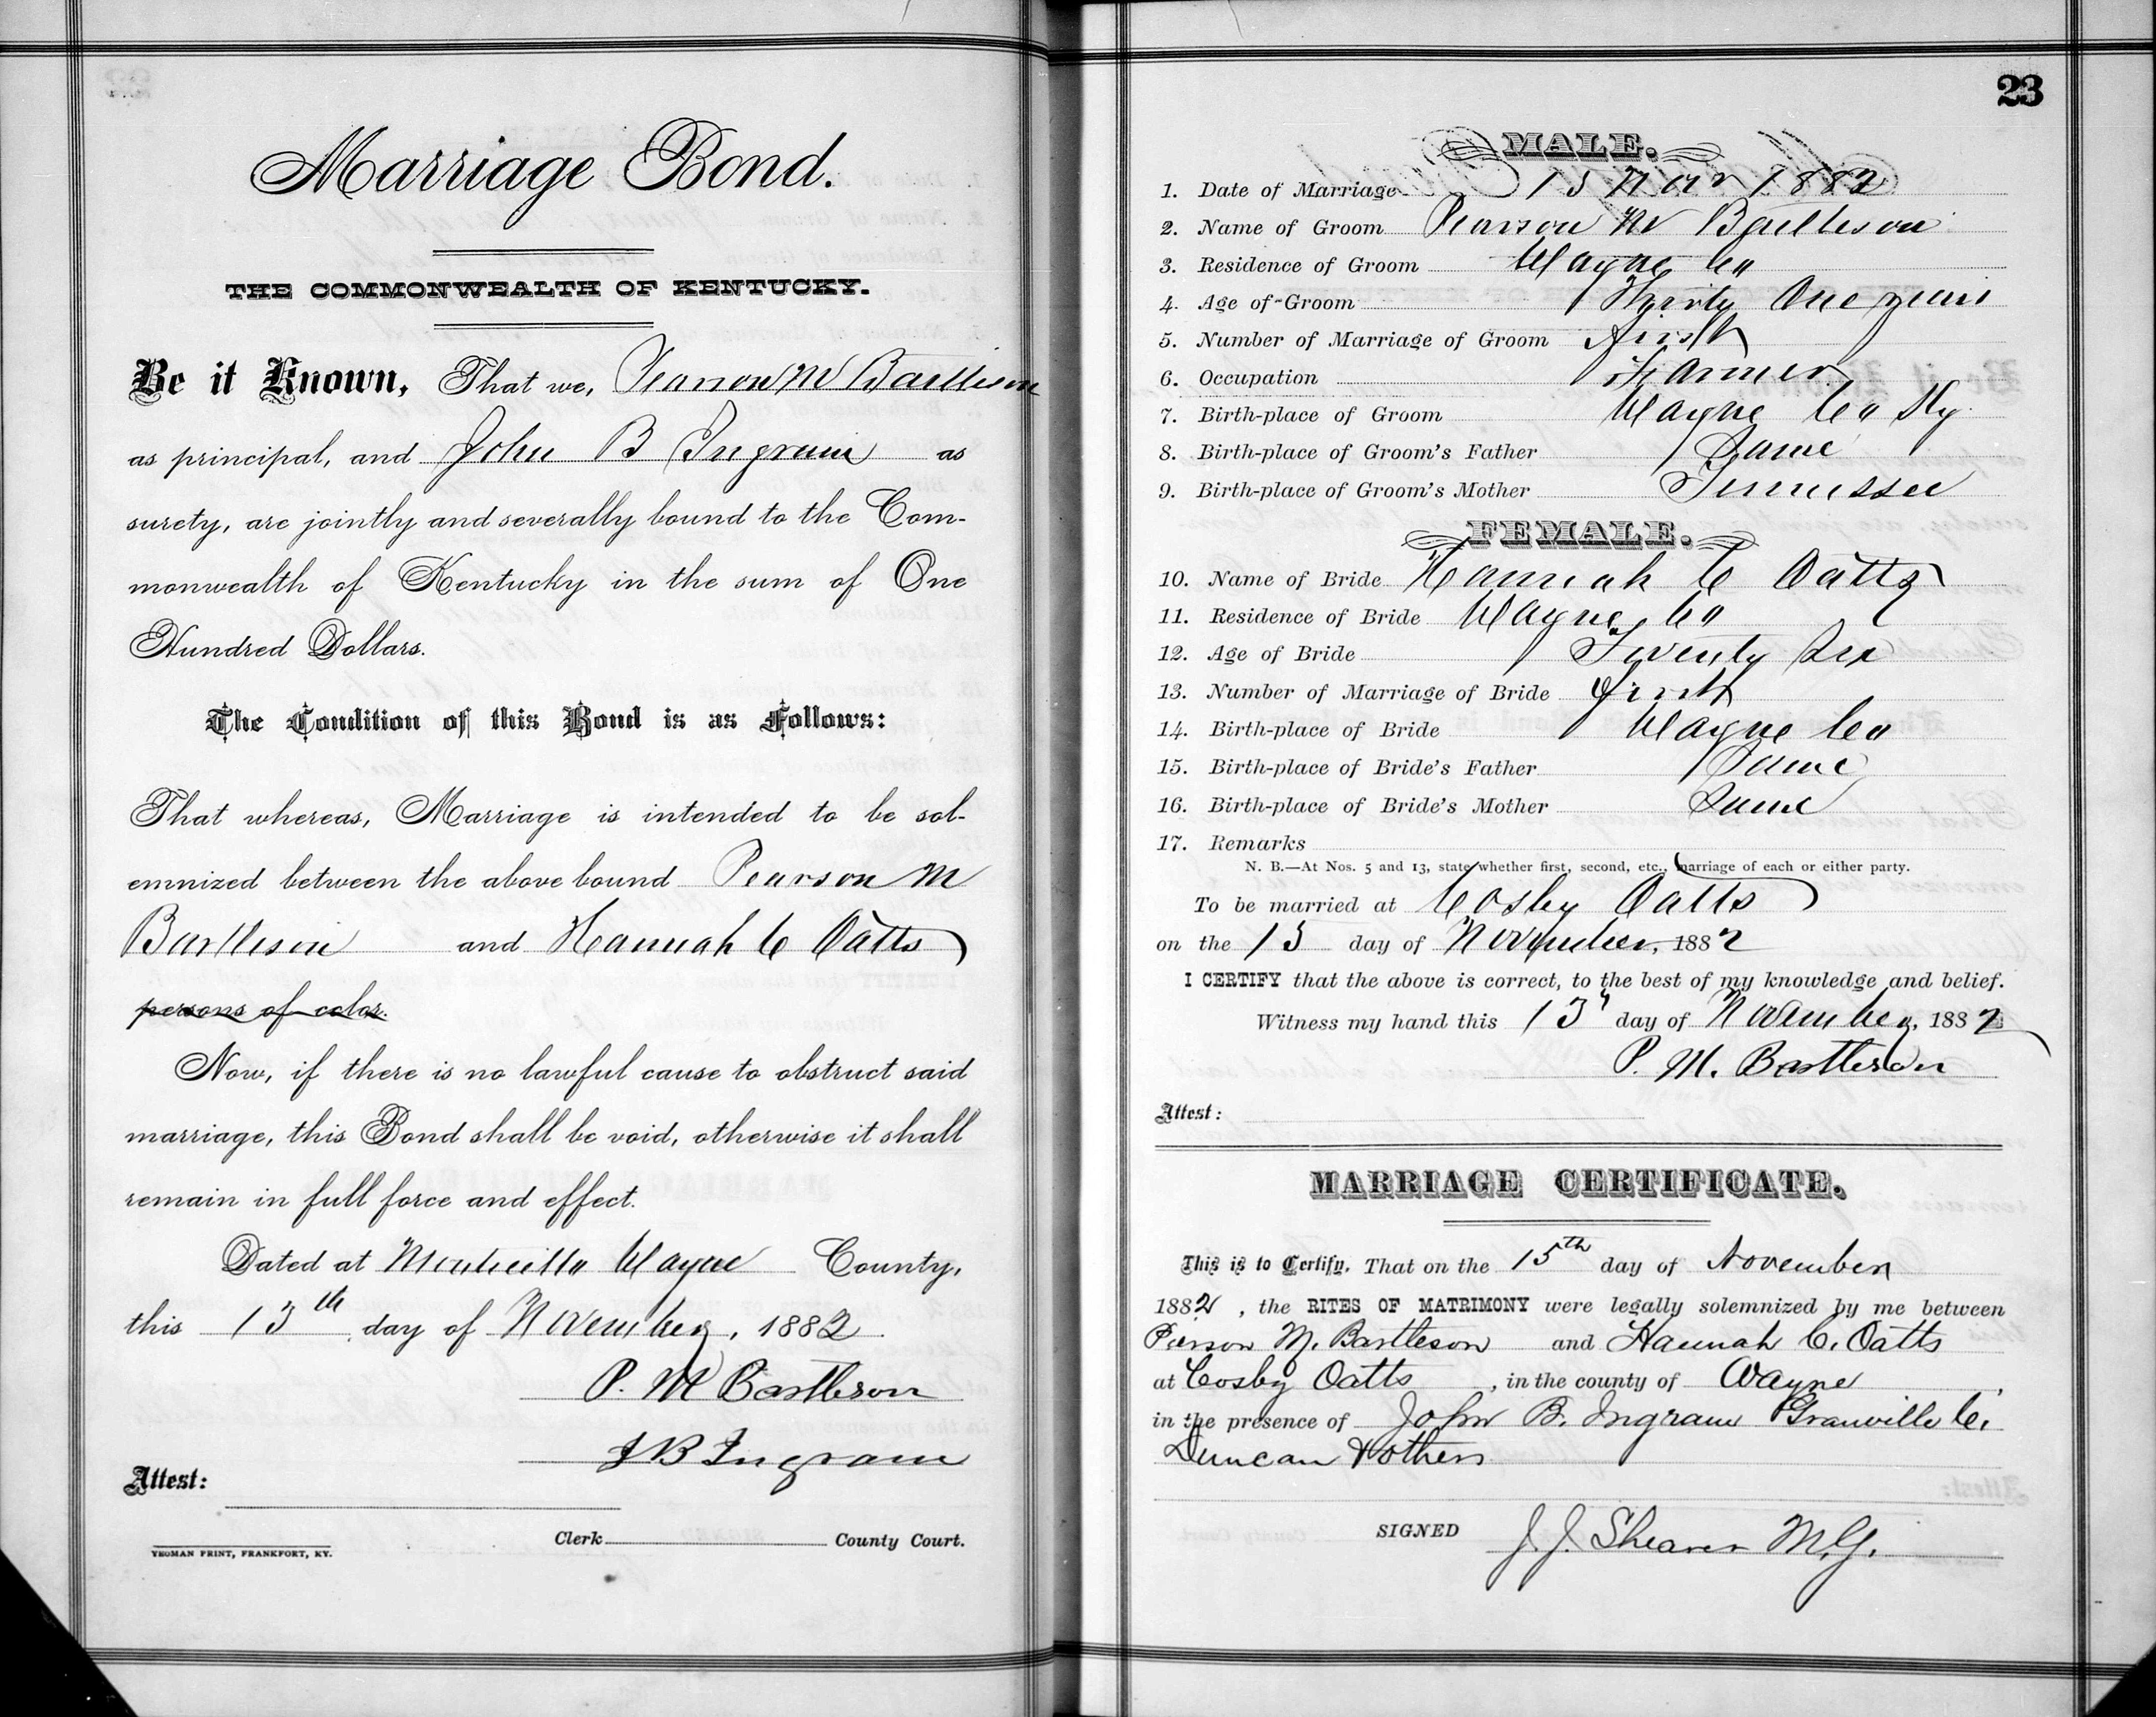 Marriage Bond.
THE COMMONWEALTH OF KENTUCKY.
Be it Known, That we, Pearson M Bartleson
as principal, and John B Ingram as
surety, are jointly and severally bound to the Com-
monwealth of Kentucky in the sum of One
Hundred Dollars.
The Condition of this Bond is as Follows:
That whereas, Marriage is intended to be sol-
emnized between the above bound Pearson M
Bartleson and Hannah C Oatts
persons of color.
Now, if there is no lawful cause to obstruct said
marriage, this Bond shall be void, otherwise it shall
remain in full force and effect.
Dated at Monticello Wayne County,
this 13th day of November, 1882.
P. M Bartleson
J B Ingram
Attest:
Clerk County Court.
YEOMAN PRINT, FRANKFORT, KY.
23
MALE.
1. Date of Marriage 15 Nov 1882
2. Name of Groom Pearson M Bartleson
3. Residence of Groom Wayne Co
4. Age of Groom Thirty One years
5. Number of Marriage of Groom First
6. Occupation Farmer
7. Birth-place of Groom Wayne Co Ky.
8. Birth-place of Groom's Father Same
9. Birth-place of Groom's Mother Tennessee
FEMALE.
10. Name of Bride Hannah C Oatts
11. Residence of Bride Wayne Co
12. Age of Bride Twenty Six
13. Number of Marriage of Bride First
14. Birth-place of Bride Wayne Co
15. Birth-place of Bride's Father Same
16. Birth-place of Bride's Mother Same
17. Remarks
N. B.—At Nos. 5 and 13, state whether first, second, etc., marriage of each or either party.
To be married at Cosby Oatts
on the 15 day of November, 1882
I CERTIFY that the above is correct, to the best of my knowledge and belief.
Witness my hand this 13" day of November, 1882
P. M. Bartleson
Attest:
MARRIAGE CERTIFICATE.
This is to Certify, That on the 15th day of November
1882, the RITES OF MATRIMONY were legally solemnized by me between
Pearson M. Bartleson and Hannah C. Oatts
at Cosby Oatts, in the county of Wayne,
in the presence of John B. Ingram Granville C.
Duncan & others
SIGNED J. J. Shearer M.G.